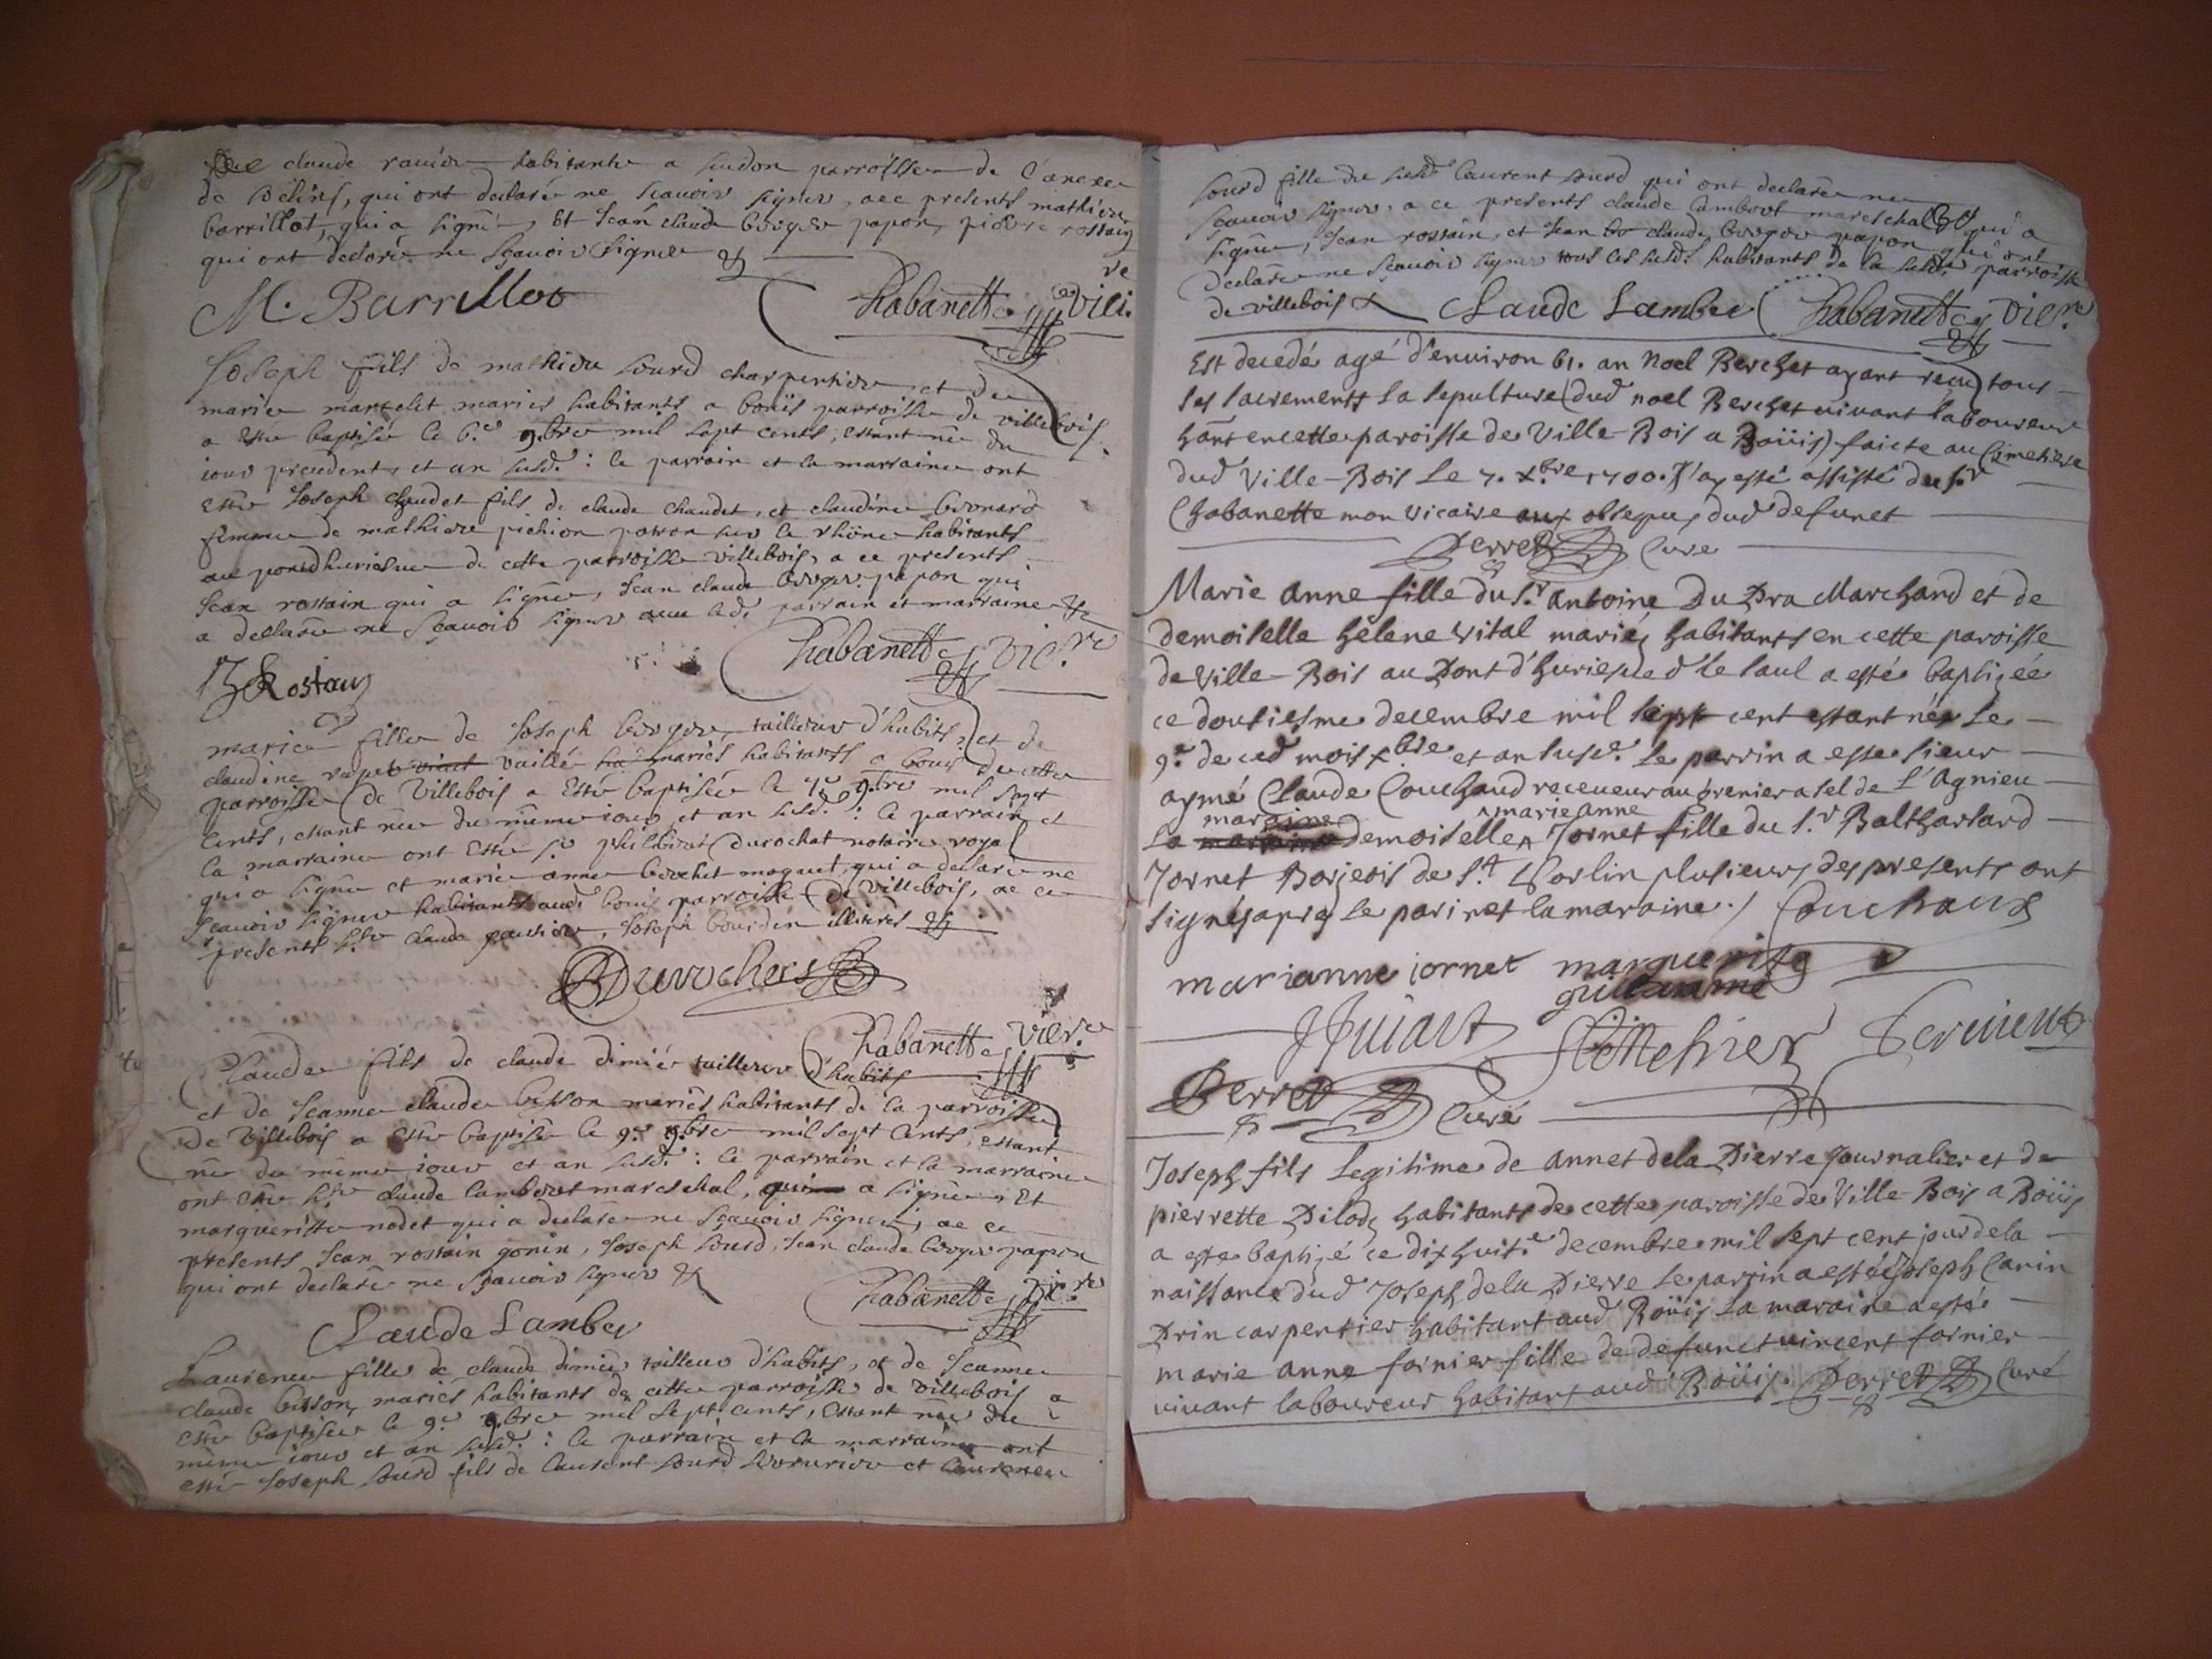 claude ravier habitante a sudon parroisse de l'anexe
de Bélins, qui ont declaré ne scauoir signer, aec presents mathieu
barrillot, qui a signé, Et Jean claude berger papon, pierre rostain
qui ont declaré ne sçauoir signer &
M. Barrillot Chabanette vic.re
Joseph fils de mathieu sourd charpentier et de
marie martelit mariés habitants a bouïs parroisse de villebois,
a Esté baptisé le 6.e 9.bre mil sept cents, estant né du
iour precedent, et an susd.: le parrain et la marraine ont
esté Joseph chaudet fils de claude chaudet, et claudine bernard
femme de mathieu pichion patron sur le rhône habitants
au pond'huriesue de cette parroisse villebois, a ce presents
Jean rostain qui a signé, Jean claude berger papon qui
a declaré ne sçauoir signer auec lad. parrain et marraine &
Rostain Chabanette vic.re
marie fille de Joseph berger, tailleur d'habits, et de
claudine vaillé mariés habitants a bouis de cette
parroisse de Villebois a Esté baptisée le 9.bre mil sept
cents, estant née du même iour et an susd.: le parrain et
la marraine ont Esté s.r philibert Durochat notaire royal
qui a signé et marie anne berchet moquet, qui a declaré ne
sçauoir signer habitants aud. bouis parroisse de Villebois, ae ce
presents h.te claude pauvier, Joseph bourdin illiterés &
Durochat
Chabanette vicr.e
Claude fils de claude dimié tailleur d'habits
et de Jeanne claude besson mariés habitants de la parroisse
de Villebois a esté baptisé le 9.e 9.bre mil sept cents, estant
né du même iour et an susd.: le parrain et la marraine
ont esté h.te claude lambert mareschal, qui a signé, Et
margueritte nodet qui a declaré ne sçauoir signer, ae ce
presents Jean rostain gonin, Joseph sourd, Jean claude berger papon
qui ont declaré ne sçauoir signer &
Chabanette vic.re
Claude Lamber
Laurence fille de claude dimié tailleur d'habits, et de Jeanne
claude besson, mariés habitants de cette parroisse de villebois a
esté baptisée le 9.e 9.bre mil sept cents, estant née du
même iour et an susd.: le parrain et la marraine ont
esté Joseph sourd fils de laurent sourd et laurence
sourd fille du susd. laurent sourd qui ont declaré ne
sçauoir signer, a ce presents claude lambert mareschal qui a
signé, Jean rostain, et Jean claude berger papon qui ont
declaré ne sçauoir signer tous les susd. habitants de la susd. parroisse
de villebois & Claude Lamber Chabanette vic.re
Est decedé agé d'enuiron 61. an Noel Berchet ayant receu tous
les sacrements la sepulture dud noel Berchet viuant laboureur
hânt en cette paroisse de Ville-Bois a Boüis faicte au Cimetiere
dud Ville-Bois Le 7. x.bre 1700. J'ay esté assisté du s.r
Chabanette mon vicaire aux obseques dud defunct
Perret Curé
Marie anne fille du s.r antoine Du Pra Marchand et de
demoiselle helene vital mariés habitants en cette paroisse
de Ville-Bois au Pont d'huriesue d'le saul a esté baptizée
ce doutiesme decembre mil sept cent estant née Le
9.e de ced mois x.bre et an susd.e Le parrin a esté sieur
aymé Claude Couchaud receueur au grenier a sel de L'Agnieu
maraine marie anne
La demoiselle Jornet fille du s.r Balthazard
Jornet Borjeois de s.t Sorlin plusieurs des presents ont
signés apres le parin et la maraine. / Couchaux
marianne iornet marguerite
guillaume
Perret Curé
Joseph fils Legitime de annet dela Pierre Journalier et de
pierrette Pilods habitants de cette paroisse de Ville Bois a Boüis
a esté baptizé ce dixhuit.e decembre mil sept cent jour de la
naissance dud Joseph dela Pierre Le parrin a esté Joseph Carin
Prin carpentier habitant aud Boüis La maraine a esté
marie anne fornier fille de defunct vincent fornier
viuant laboureur habitant aud Boüis. Perret Curé